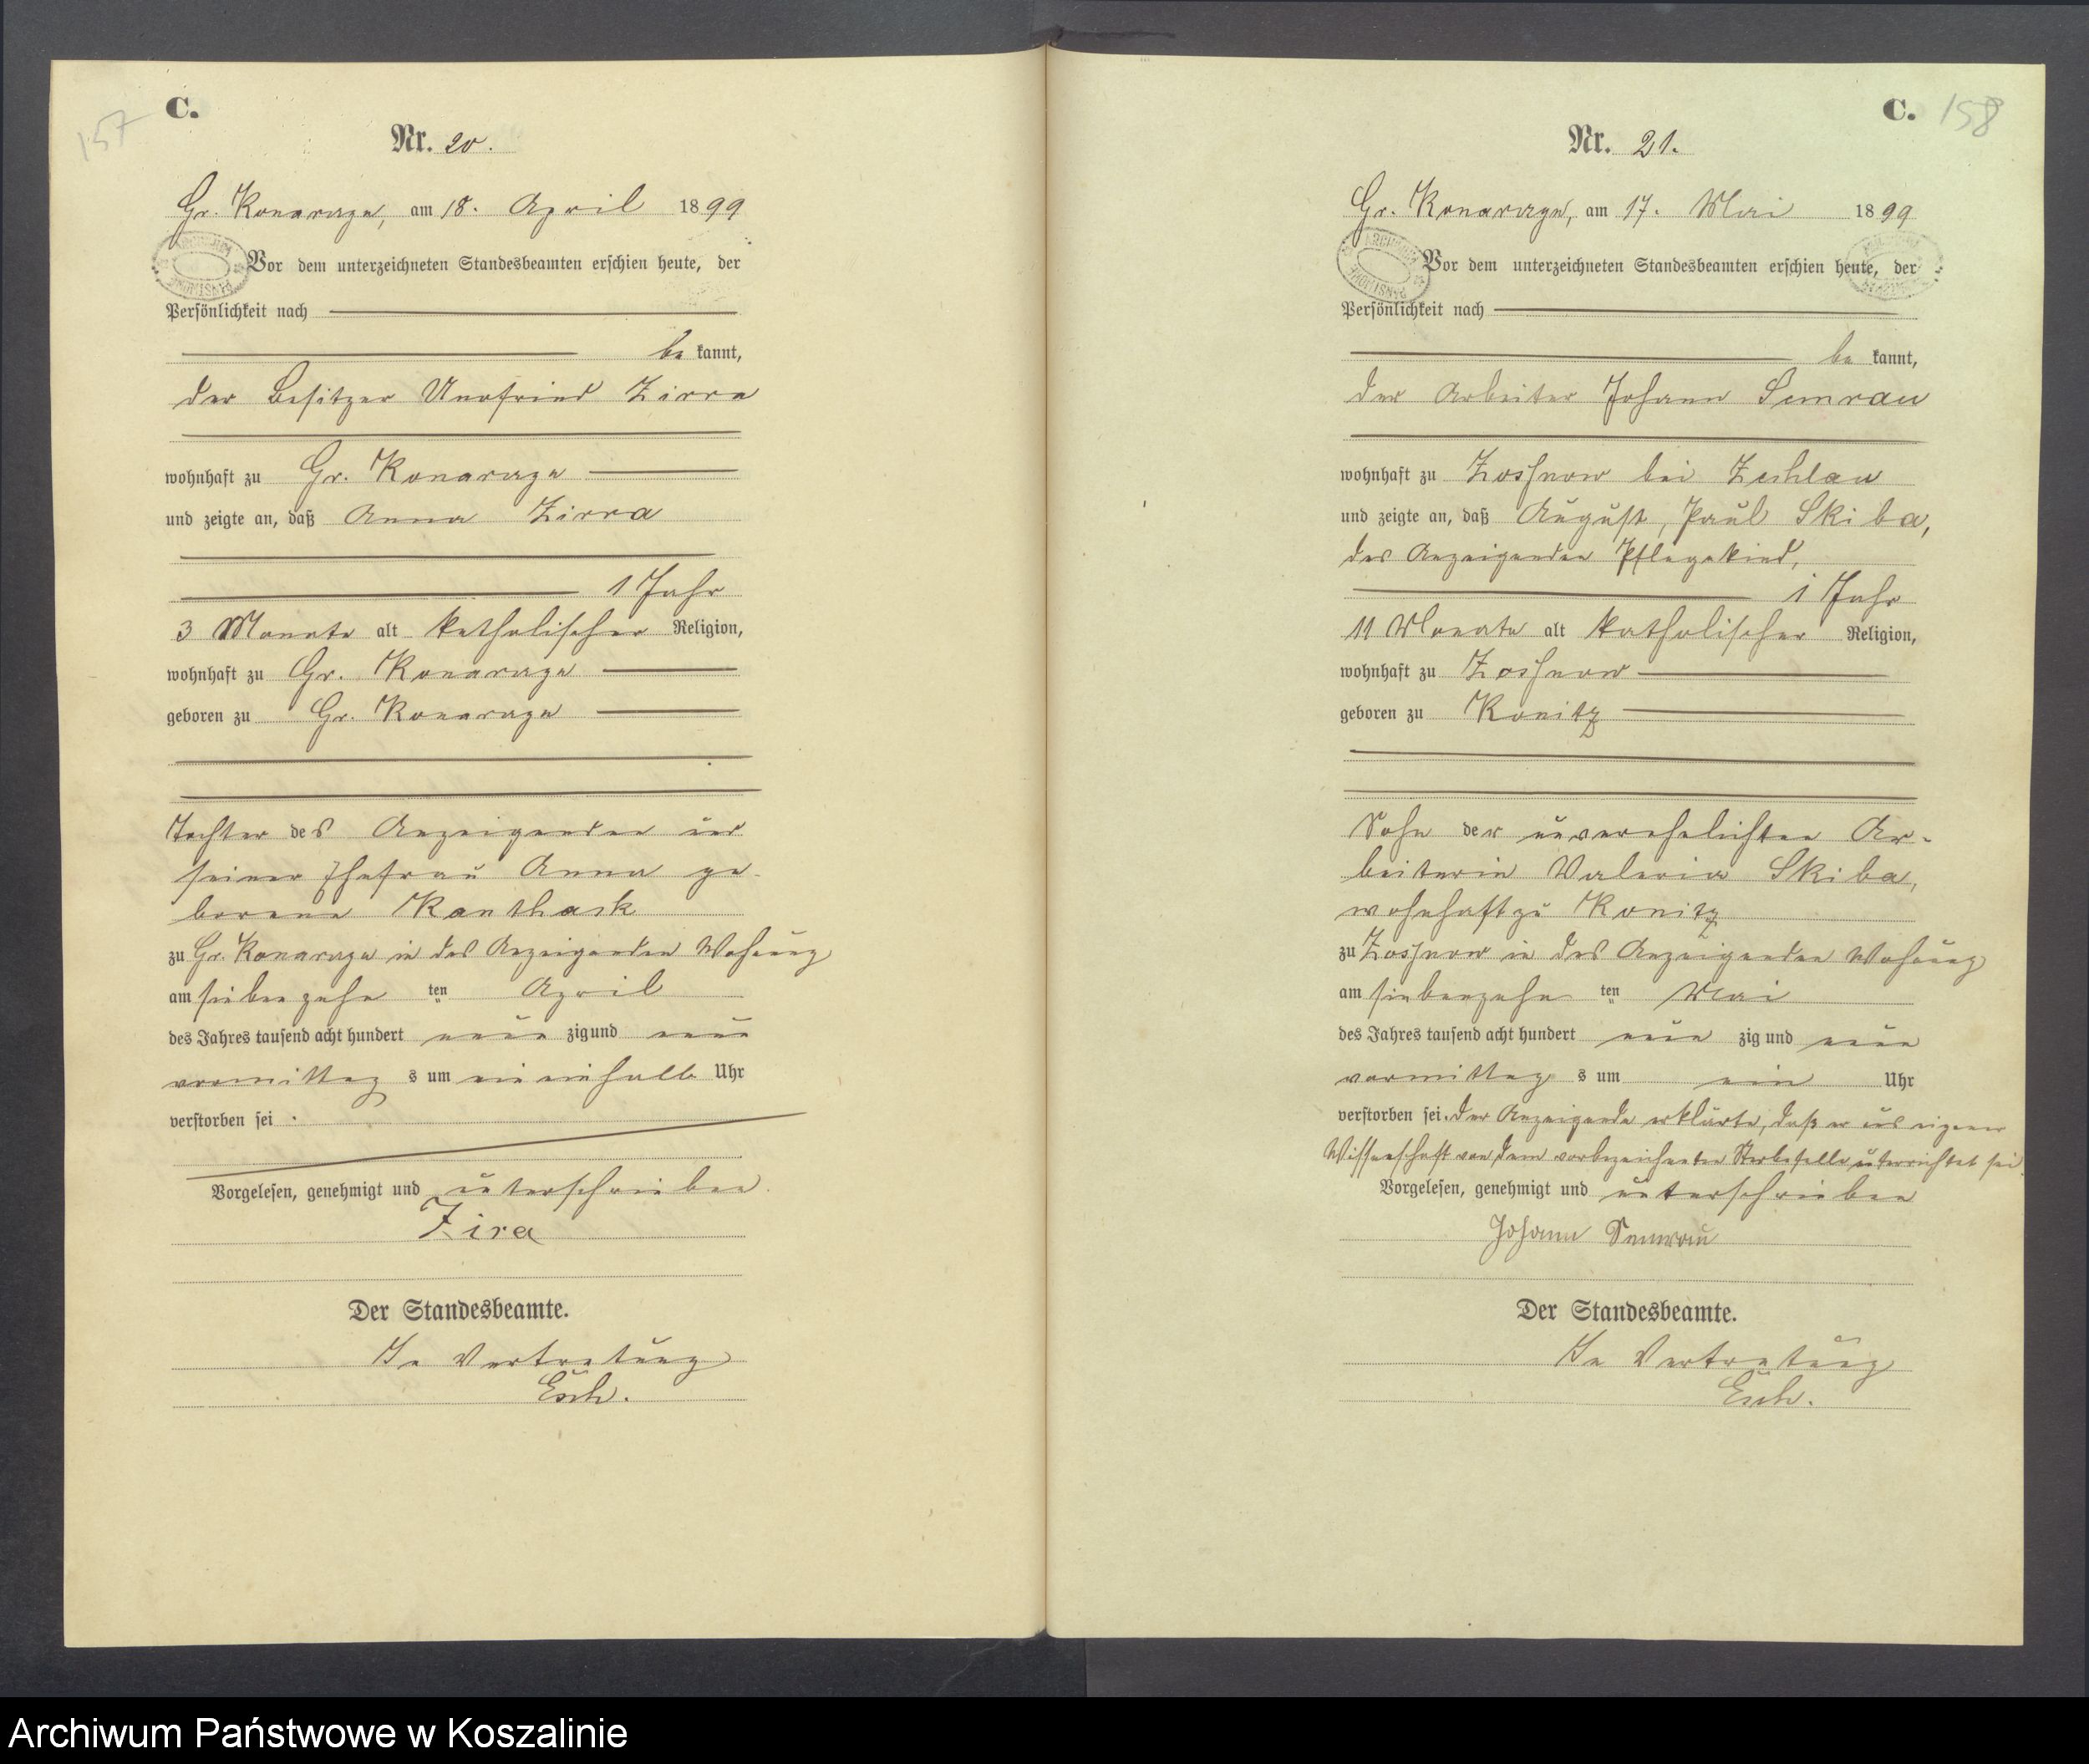 157
C.
Nr. 20.
Gr. Konarczyn, am 18. April 1899
Vor dem unterzeichneten Standesbeamten erschien heute, der
Persönlichkeit nach
be kannt,
der Besitzer Zirra
wohnhaft zu Gr. Konarczyn
und zeigte an, daß Anna Zirra
1 Jahr
3 Monate alt katholischer Religion,
wohnhaft zu Gr. Konarczyn
geboren zu Gr. Konarczyn
Tochter des Anzeigenden und
seiner Ehefrau Anna ge-
borene Kanthack
zu Gr. Konarczyn in des Anzeigenden Wohnung
am siebenzehn ten April
des Jahres tausend acht hundert neun zig und neun
vormittag s um ein einhalb Uhr
verstorben sei .
Vorgelesen, genehmigt und unterschrieben
Zira
Der Standesbeamte.
In Vertretung
Esch.
C. 158
Nr. 21.
Gr. Konarczyn, am 17. Mai 1899
Vor dem unterzeichneten Standesbeamten erschien heute, der
Persönlichkeit nach
be kannt,
der Arbeiter Johann Semrau
wohnhaft zu Zosnow bei Zechlau
und zeigte an, daß August, Paul Skiba,
des Anzeigenden Pflegekind,
1 Jahr
11 Monate alt katholischer Religion,
wohnhaft zu Zosnow
geboren zu Konitz
Sohn der unverehelichten Ar-
beiterin Valeria Skiba,
wohnhaft zu Konitz
zu Zosnow in des Anzeigenden Wohnung
am siebenzehn ten Mai
des Jahres tausend acht hundert neun zig und neun
vormittag s um ein Uhr
verstorben sei. Der Anzeigende erklärte, daß er aus eigener
Wissenschaft von dem vorbezeichneten Sterbefalle unterrichtet sei.
Vorgelesen, genehmigt und unterschrieben
Johann Semrau
Der Standesbeamte.
In Vertretung
Esch.
Archiwum Państwowe w Koszalinie